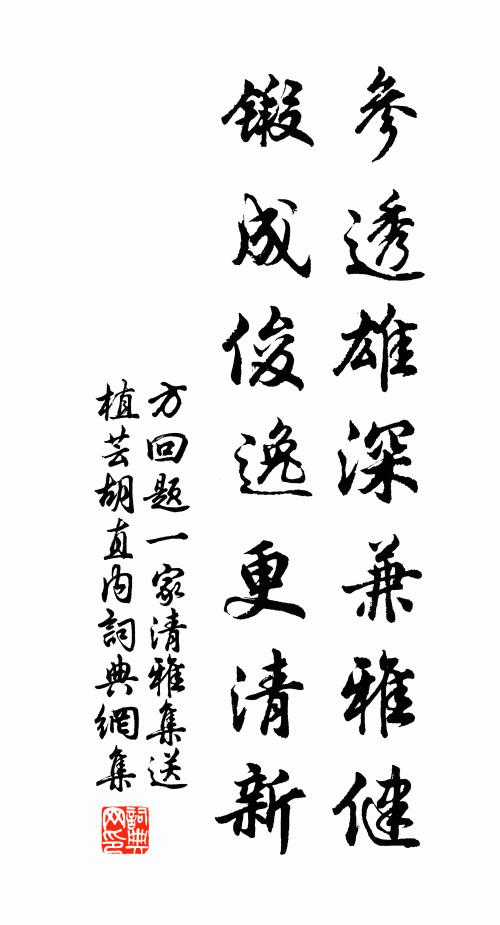 參透雄深兼雅健
鍛成俊逸更清新
方回题一家清雅集送
植芸胡直内詞典網集
詞典
网印